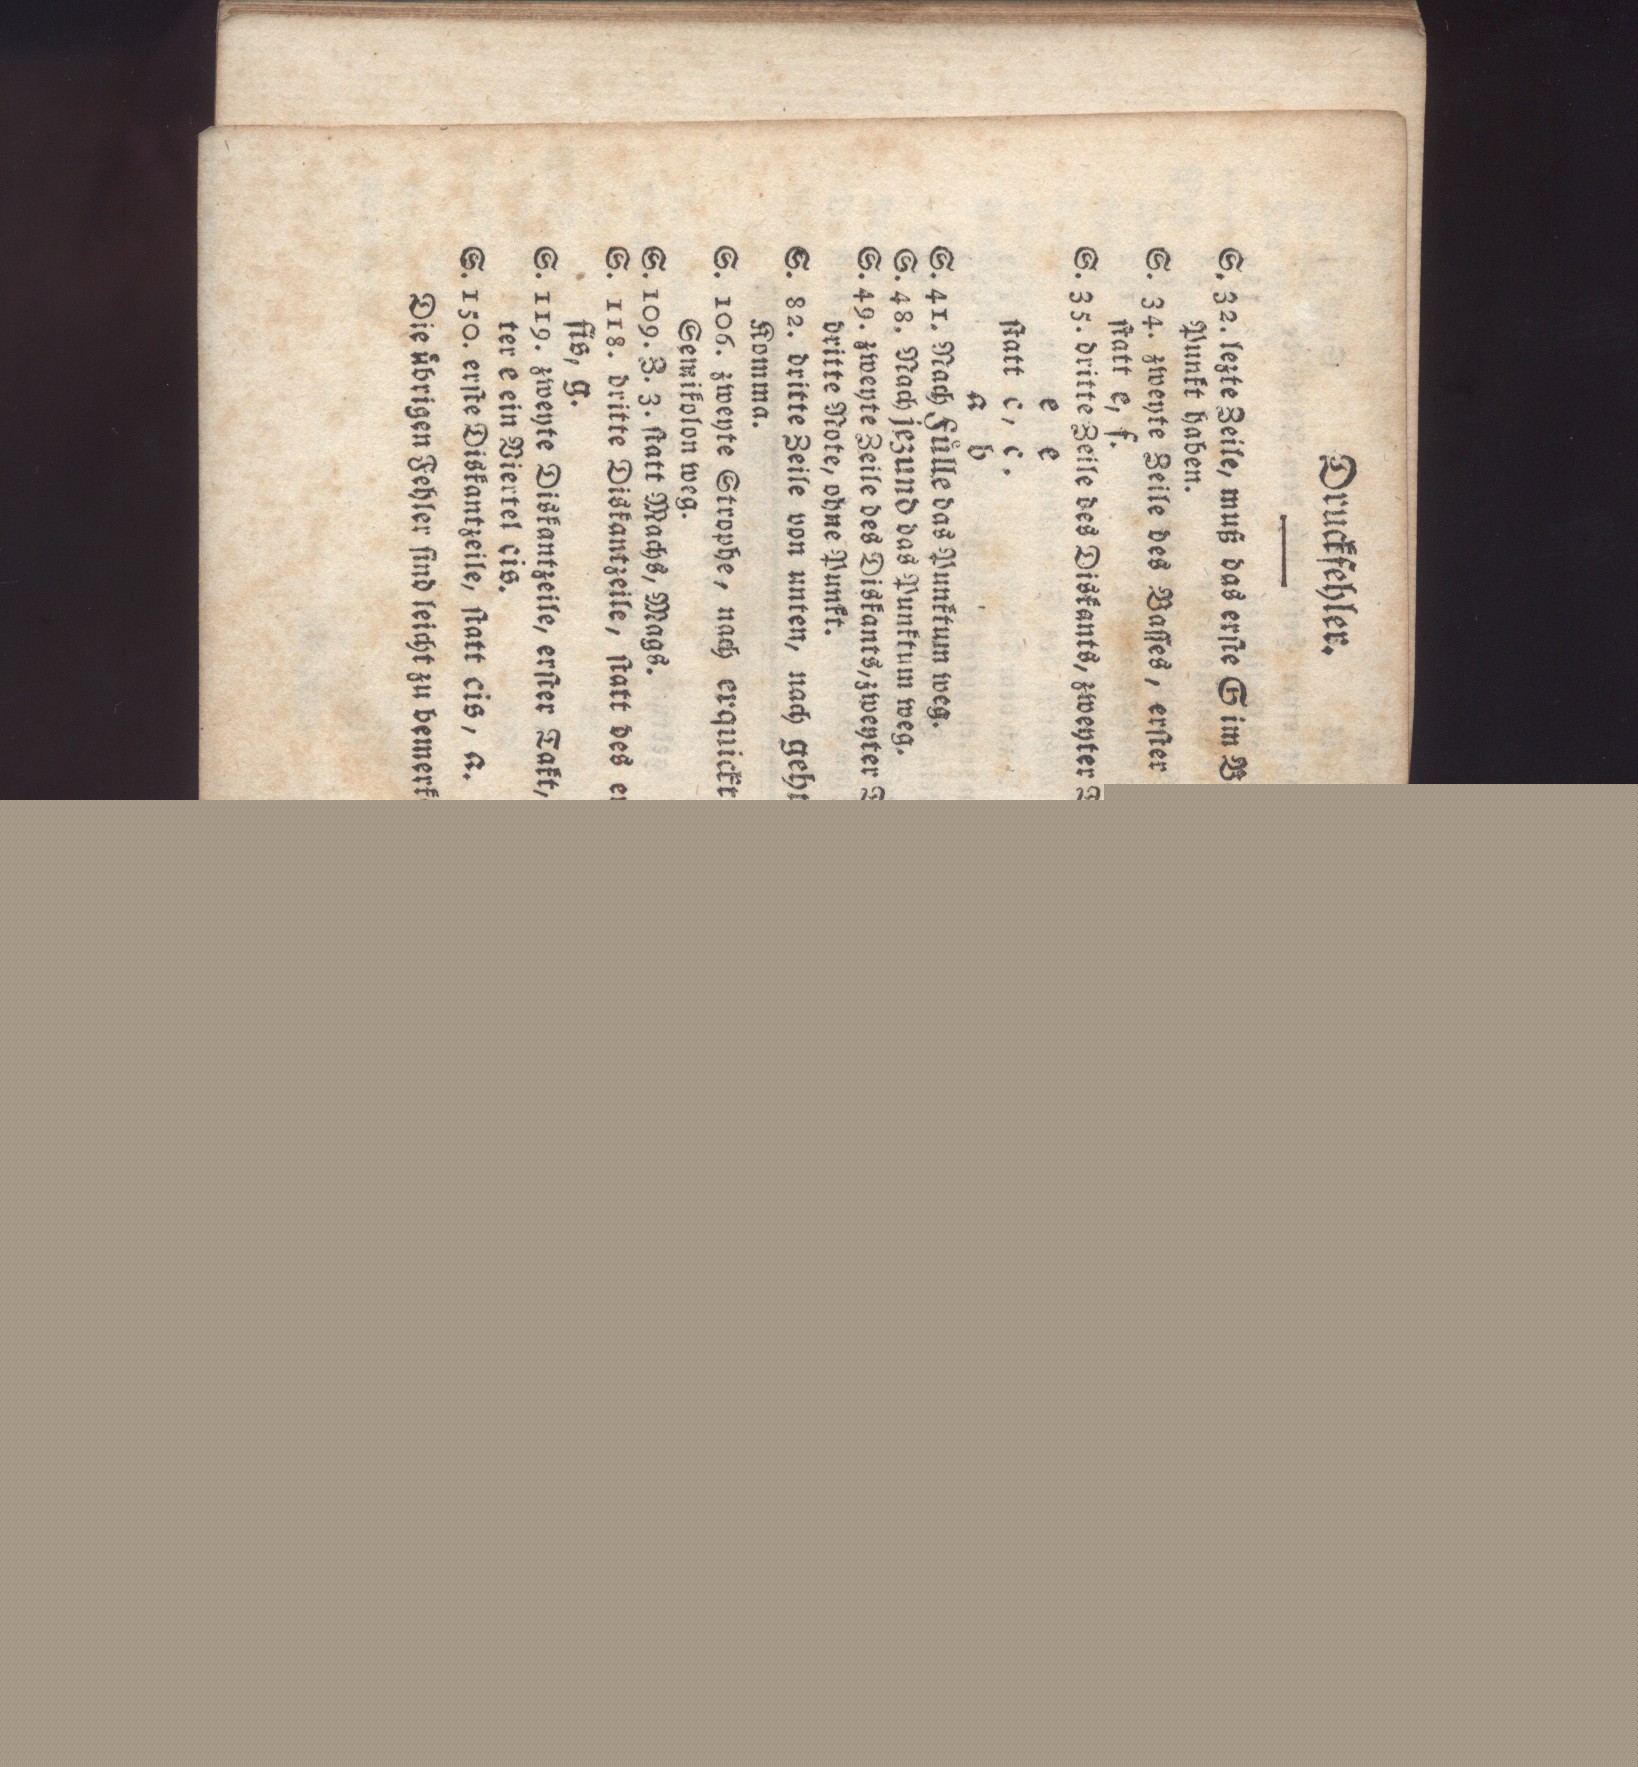 Druckfehler.
S. 32. lezte Zeile, muß das erste G im
Punkt haben.
S. 34. zweyte Zeile des Basses, erster
statt e, f.
S. 35. dritte Zeile des Diskants, zweyter
e e
statt c, c.
a b
S. 41. Nach Fülle das Punktum weg.
S. 48. Nach jezund das Punktum weg.
S. 49. zweyte Zeile des Diskants, zweyter
dritte Note, ohne Punkt.
S. 82. dritte Zeile von unten, nach
Komma.
S. 106. zweyte Strophe, nach erquickt
Semikolon weg.
S. 109. Z. 3. statt Wachs, Wags.
S. 118. dritte Diskantzeile, statt des
fis, g.
S. 119. zweyte Diskantzeile, erster Takt,
ter e ein Viertel cis.
S. 150. erste Diskantzeile, statt cis, a.
Die übrigen Fehler sind leicht zu